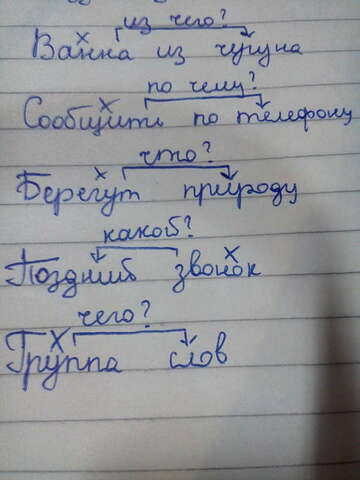 из чего?
Ванна из чугуна
по чему?
Сообщить по телефону
что?
Берегут природу
какой?
Поздний звонок
чего?
Группа слов